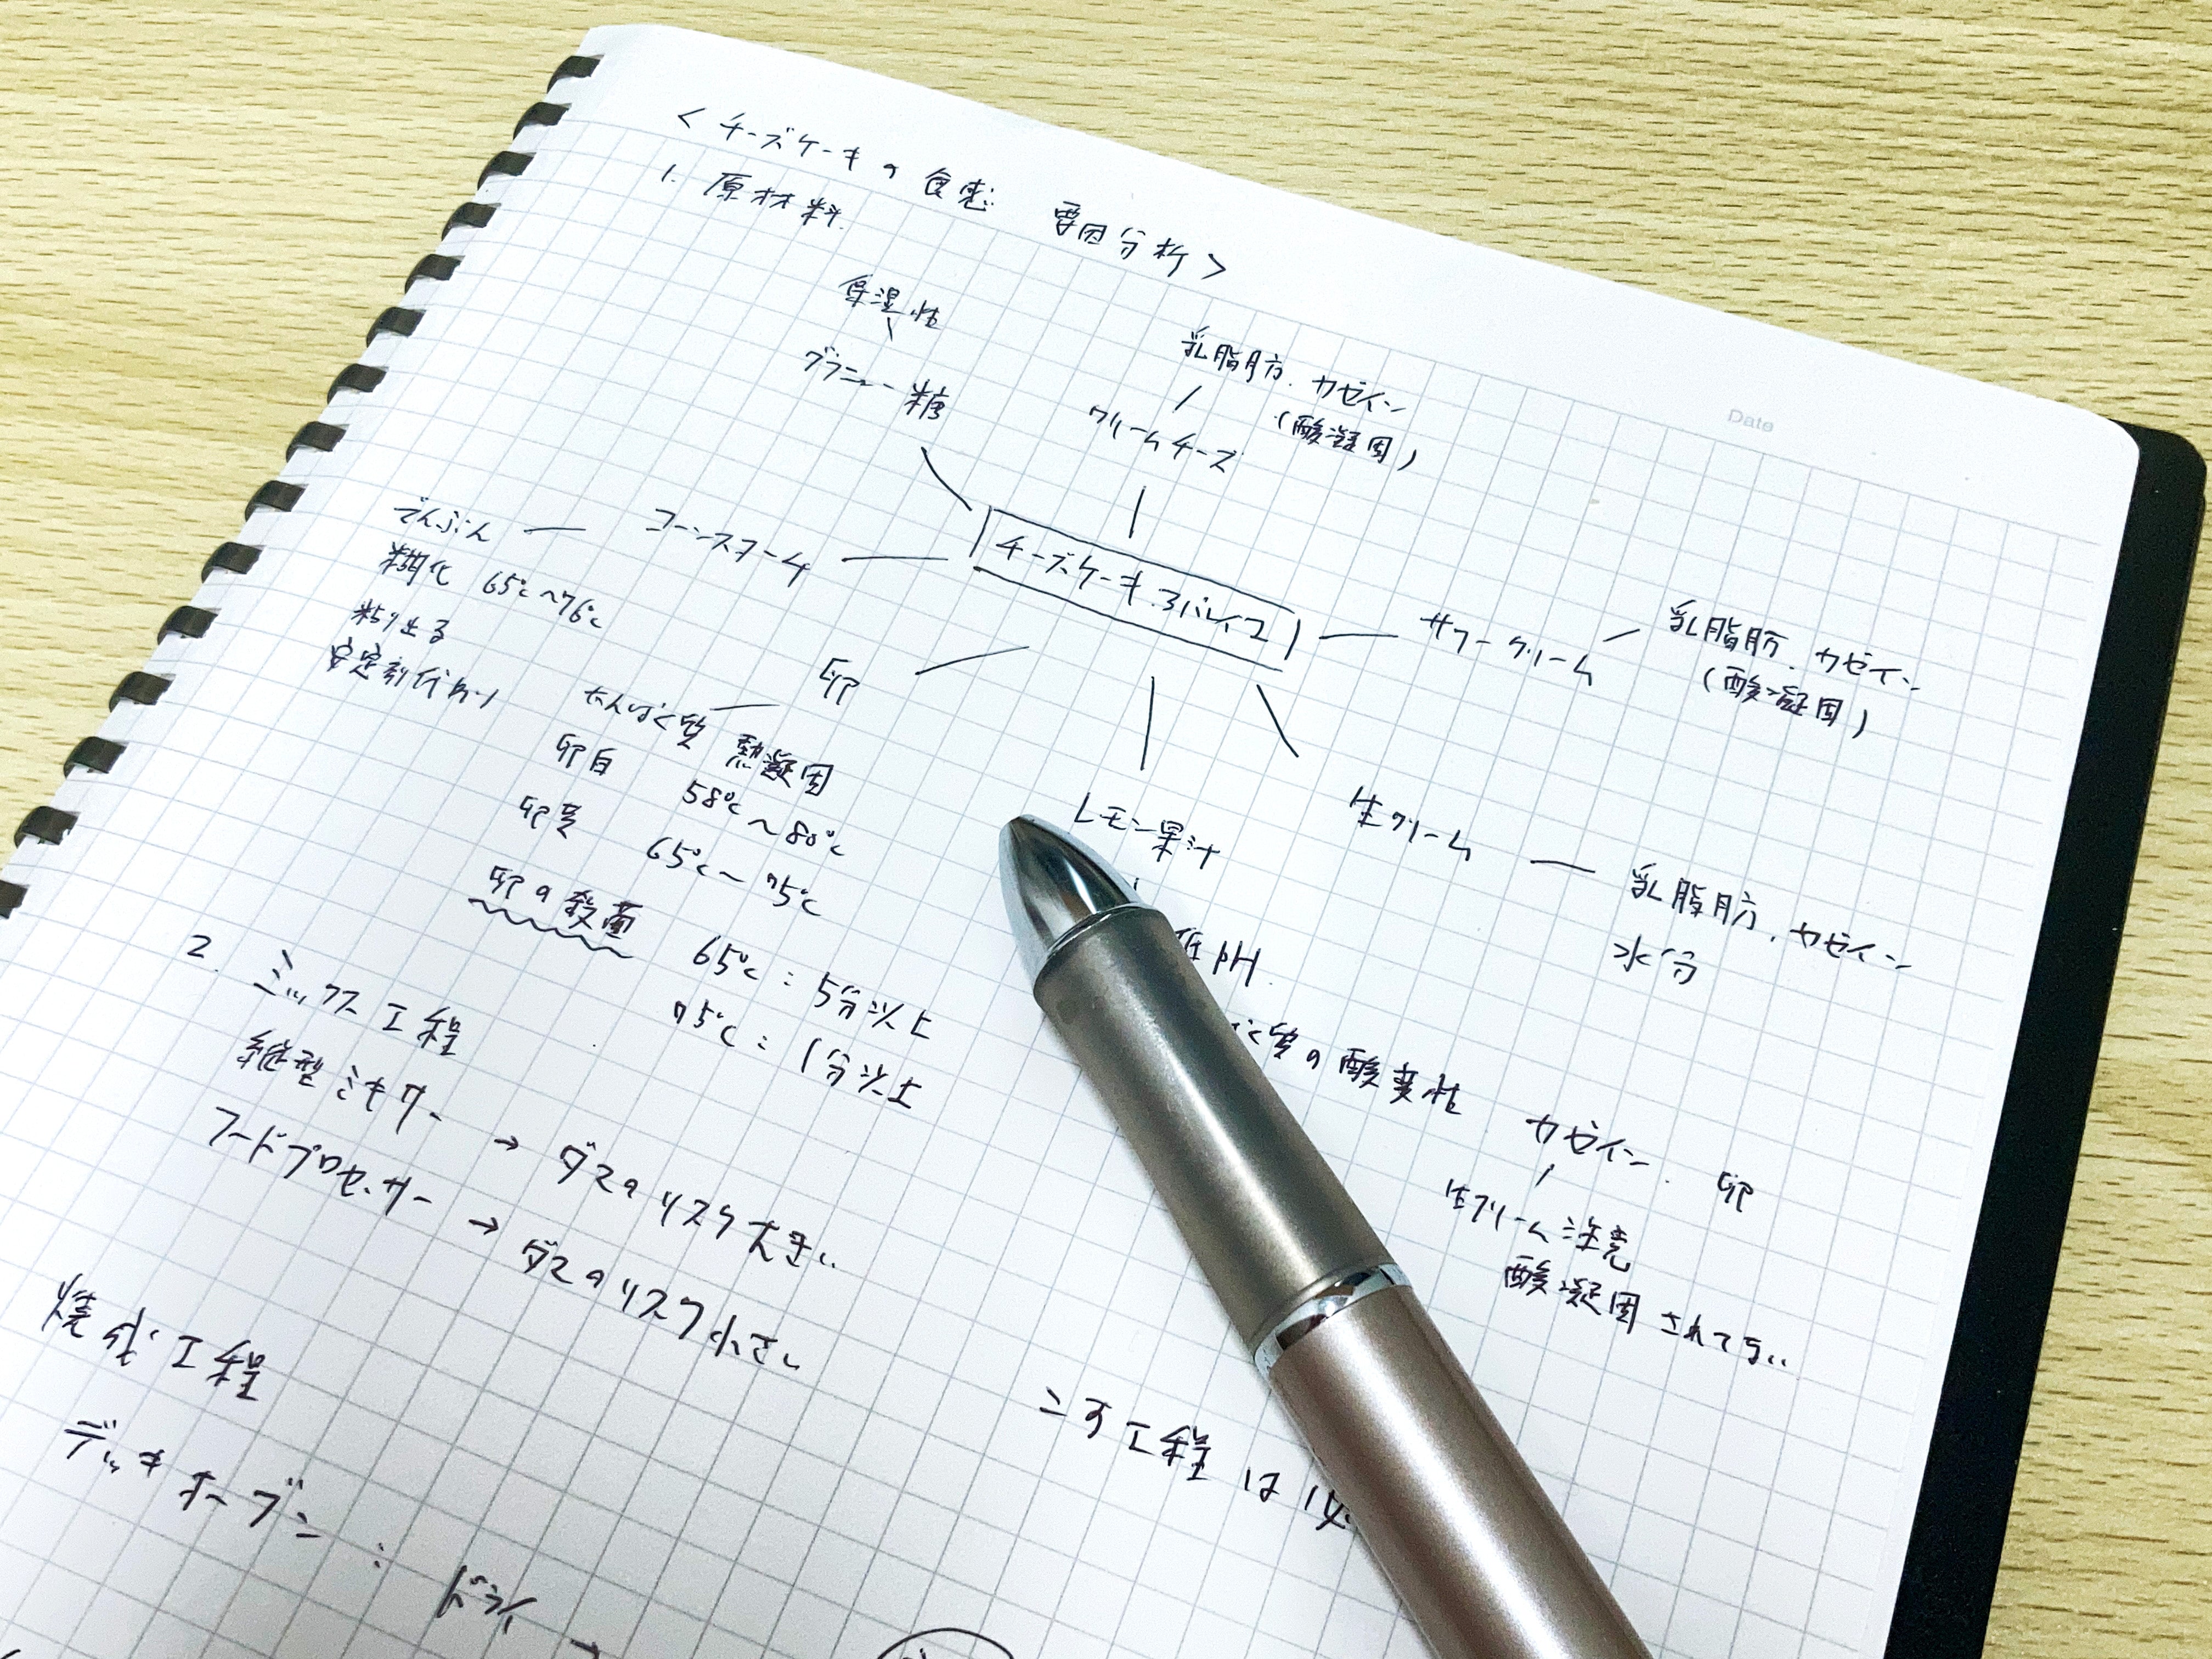 <チーズケーキの食感 要因分析>
1. 原材料
保湿性
グラニュー糖
乳脂肪、カゼイン
(酸凝固)
クリームチーズ
Date
でんぷん
コーンスターチ
チーズケーキ
糊化 65℃~76℃
粘り出る
安定剤代わり
卵
たんぱく質 熱凝固
卵白 58℃~80℃
卵黄 65℃~75℃
卵の殺菌 65℃:5分以上
75℃:1分以上
サワークリーム
乳脂肪、カゼイン
(酸凝固)
生クリーム
乳脂肪、カゼイン
水分
レモン果汁
低pH
く質の酸変性 カゼイン、卵
生クリーム注意
酸凝固されてない
2. ミックス工程
縦型ミキサー → ダマのリスク大きい
フードプロセッサー → ダマのリスク小さい
こす工程は必
焼成工程
デッキオーブン:ドライ